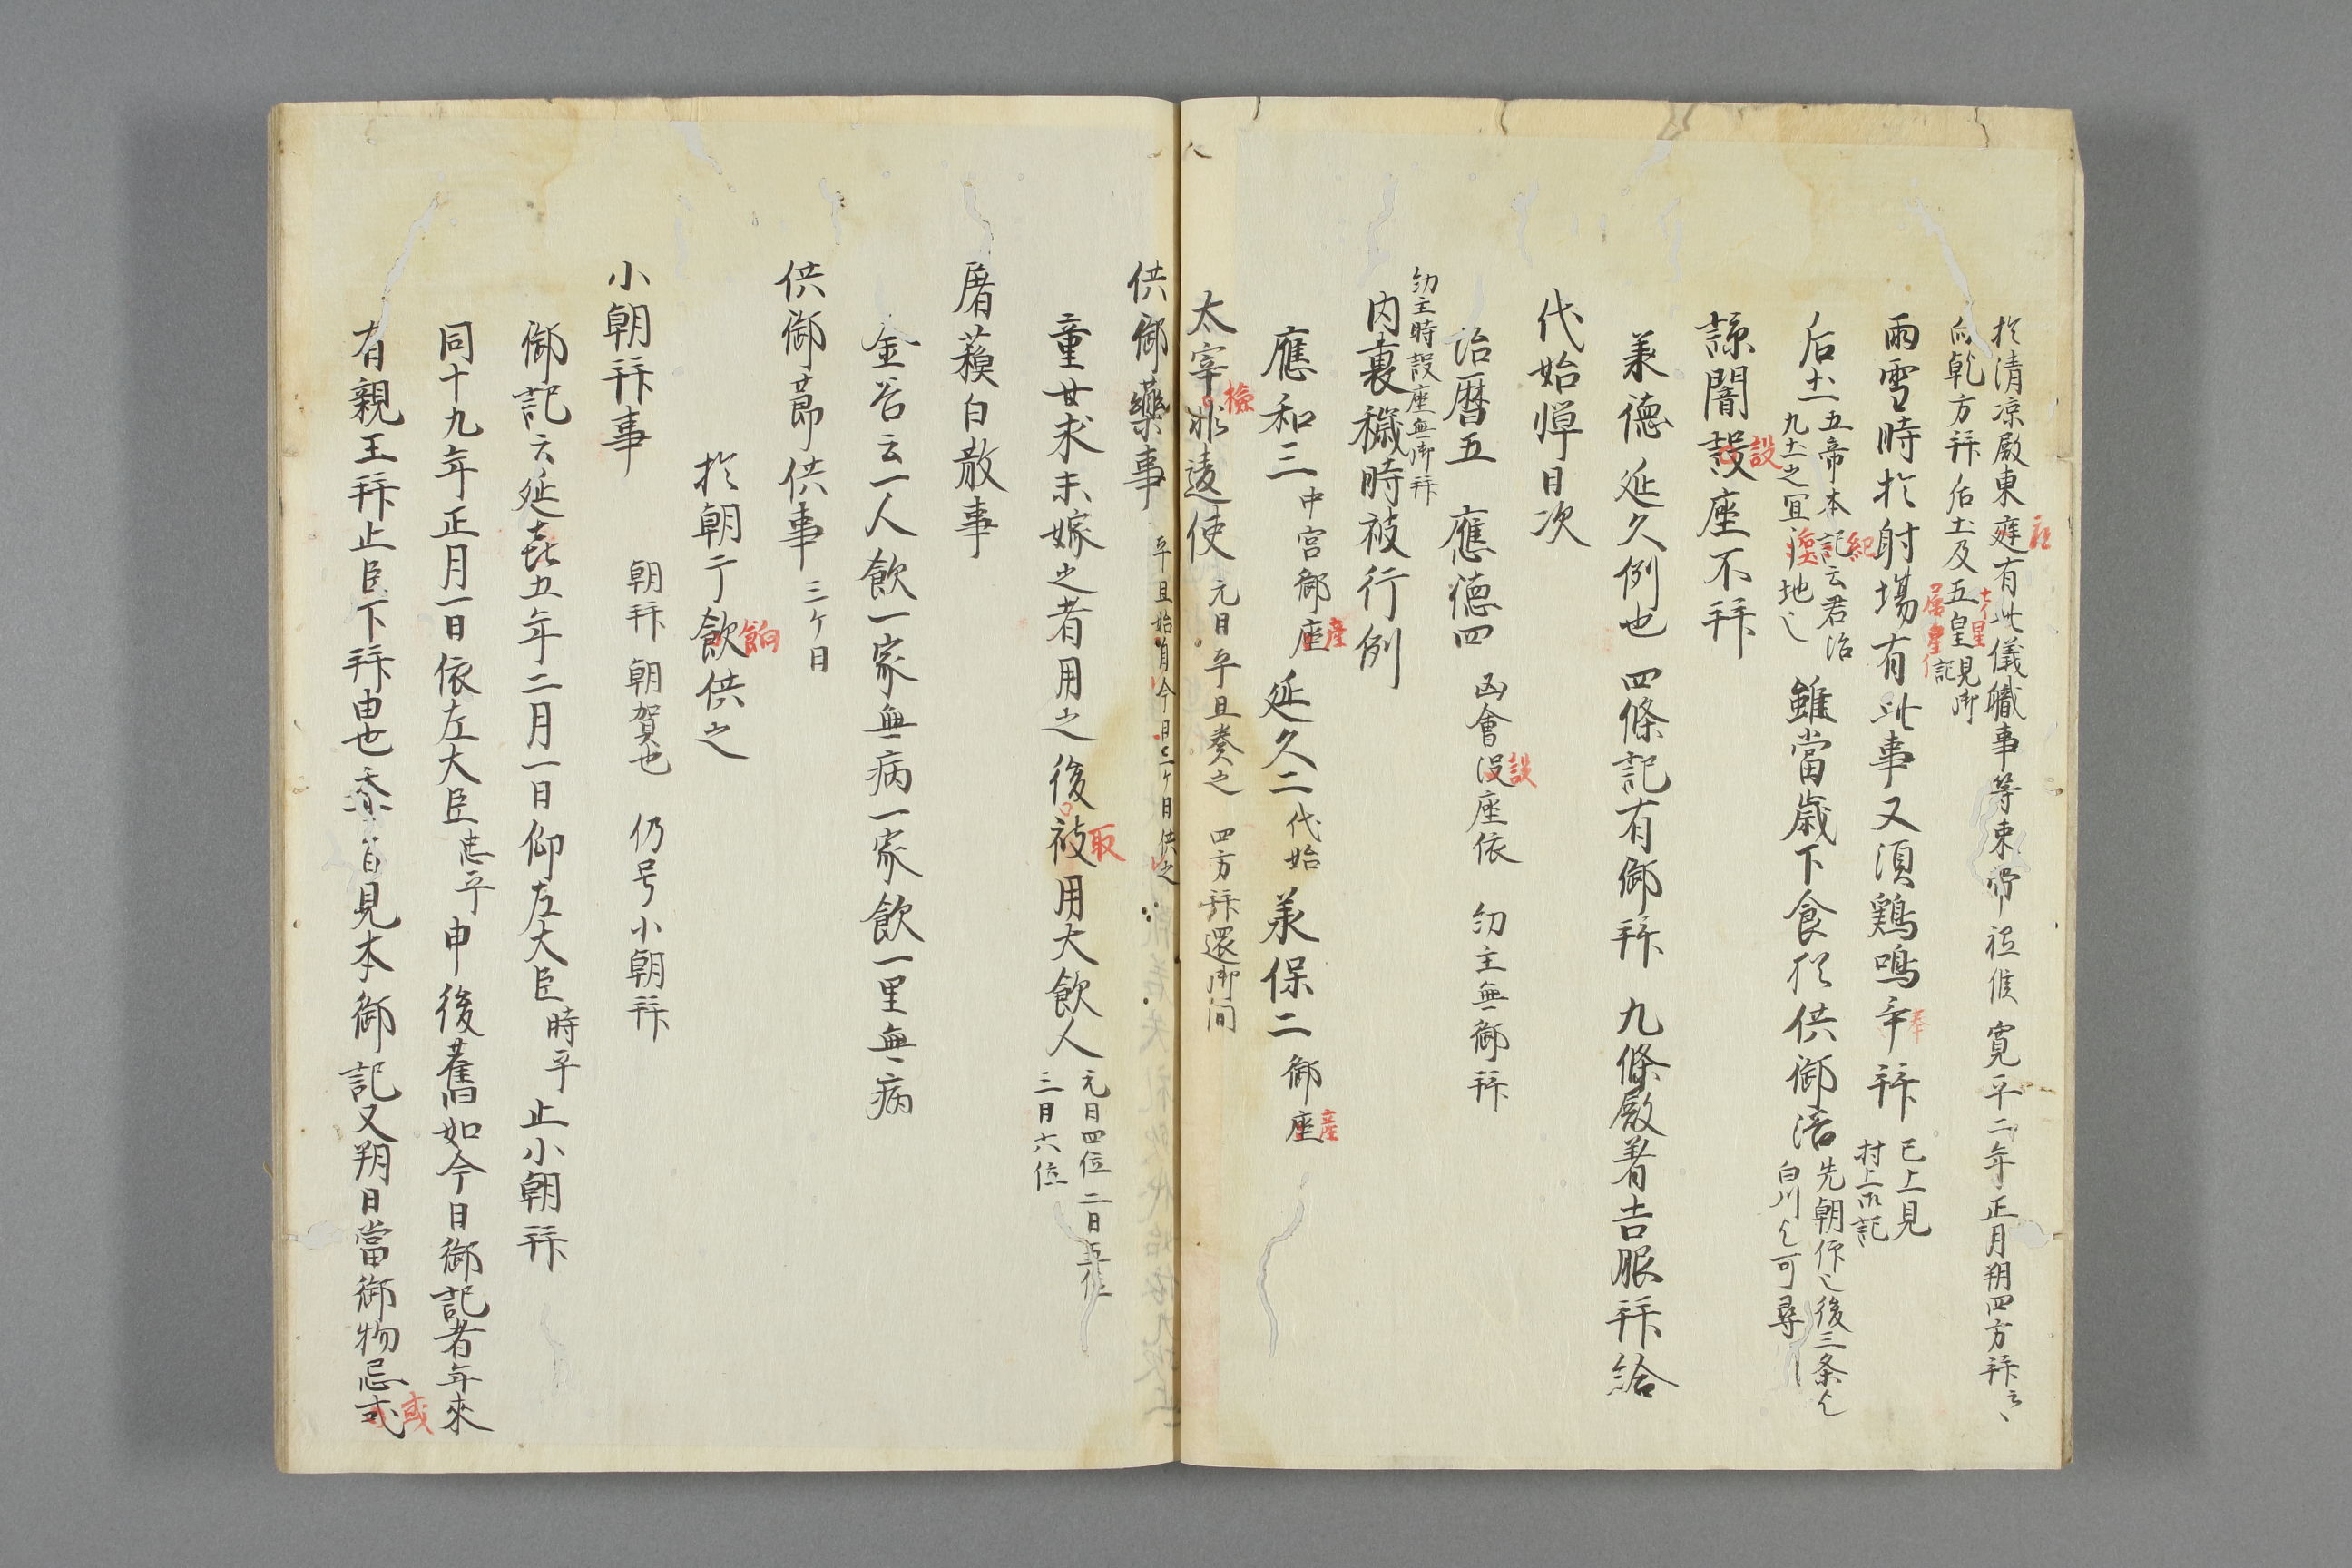 於清凉殿東庭有此儀職事等束帶祗候 寛平二年正月朔四方拜云〻
向乾方拜后土及五皇見御記
雨雪時於射場有此事又須鷄鳴奉拜 已上見村上御記
后土 五帝本記云君治九土之宜 地〻 雖當歳下食於供御浴 先朝作〻後三条 白川 可尋
諒闇設座不拜
兼德 延久例也 四條記有御拜 九條殿着吉服拜給
代始憚日次
治暦五 應徳四 凶會没座依 幼主無御拜
幼主時設座無御拜
内裏穢時被行例
應和三 中宮御座 延久二 代始 美保二 御座
太宰 逵使 元日平旦奏之 四方拜還御間
供御藥事 平旦始 今日三ヶ日供之
童女求未嫁之者用之後被用大飲人 元日四位二日五位三日六位
屠蘓白散事
金谷云一人飲一家無病一家飲一里無病
供御莭供事 三ヶ日
於朝干飲供之
小朝拜事 朝拜朝賀也 仍号小朝拜
御記云延㐂五年二月一日仰左大臣 時平 止小朝拜
同十九年正月一日依左大臣 忠平 申後舊如今日御記者年來
有親王拜止臣下拜由也 見本御記又朔日當御物忌式
檢
産
産
設
設
紀
奉
取
餉
或